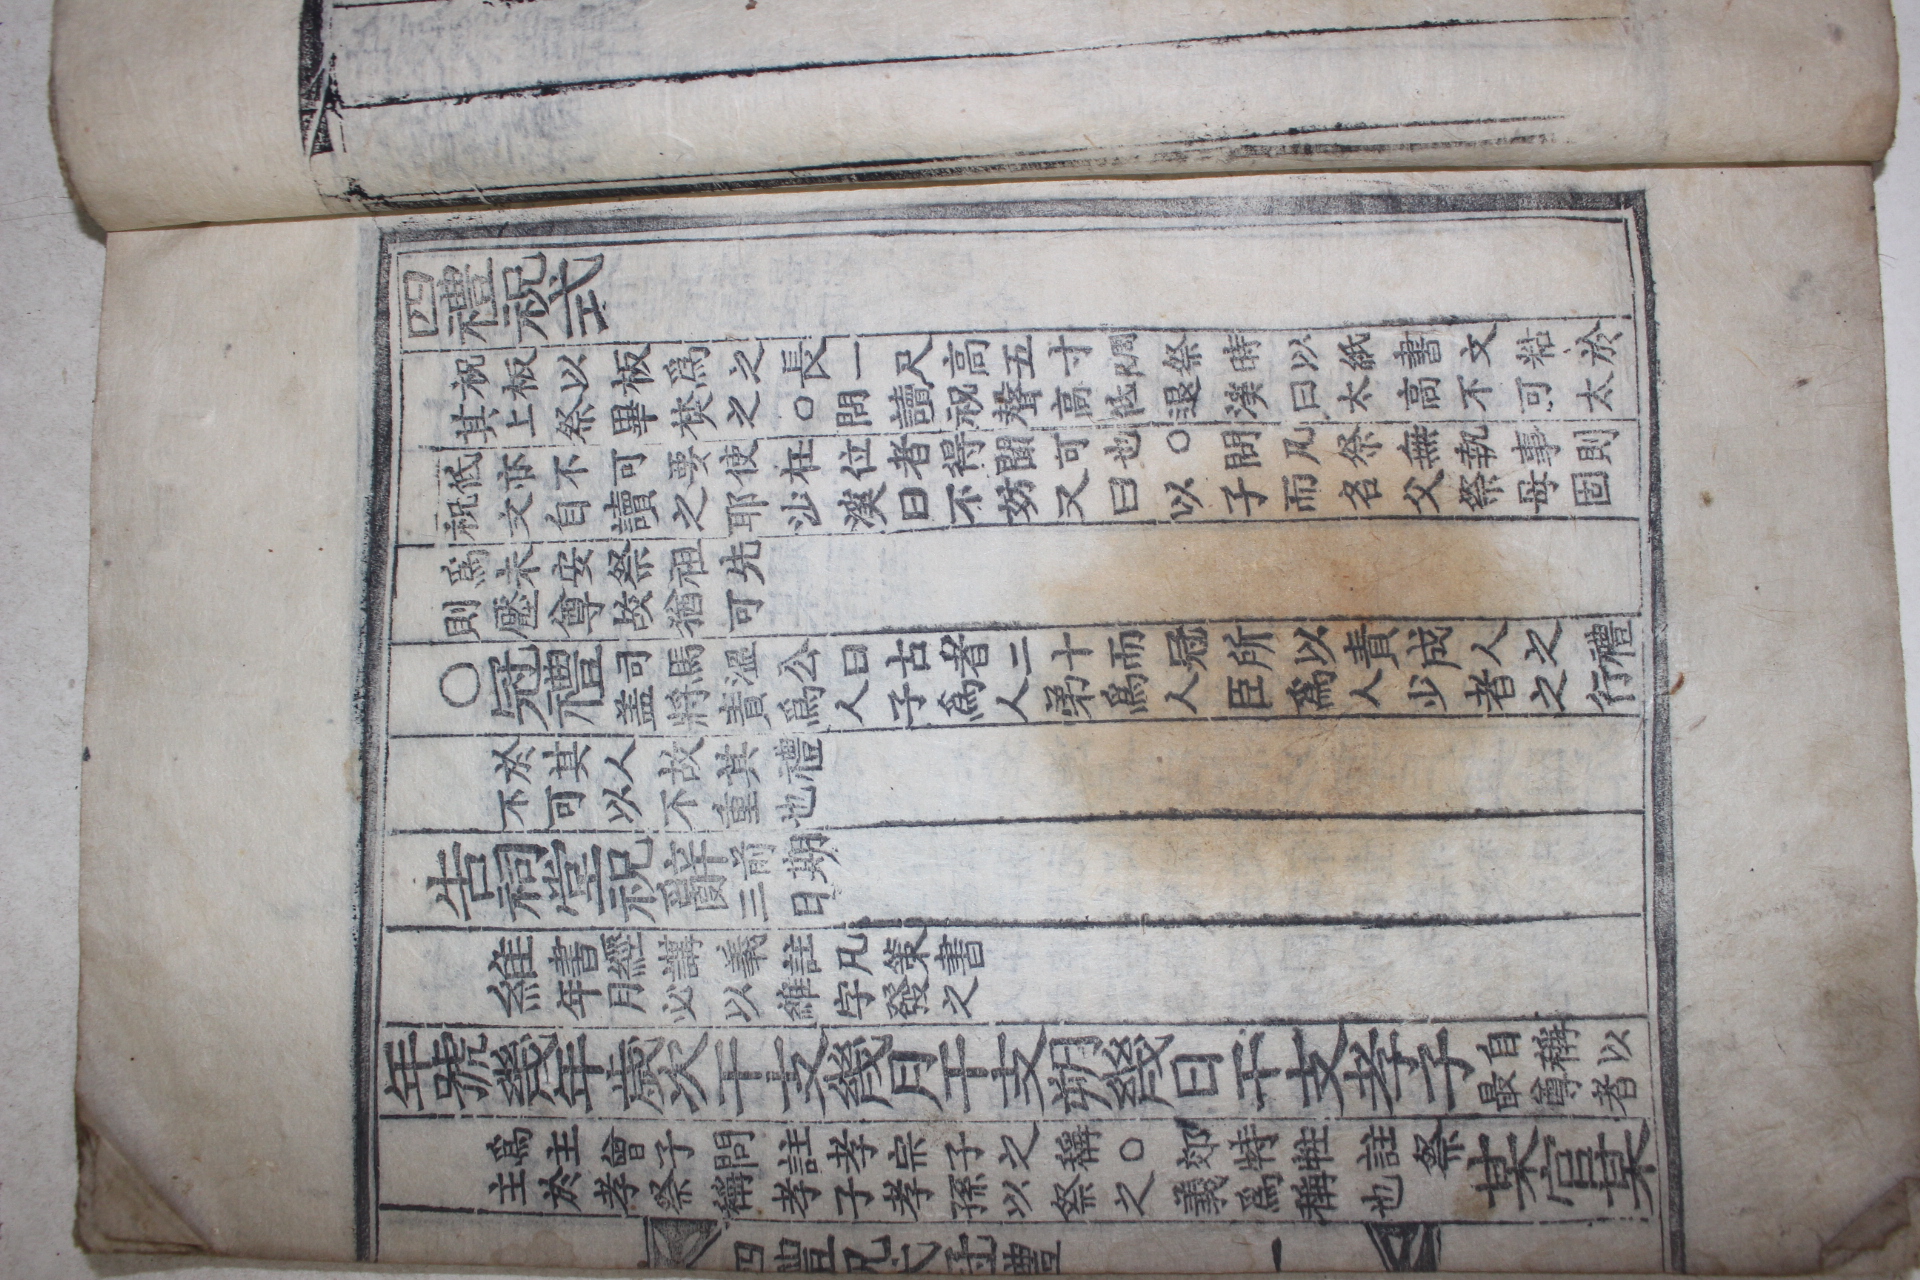 四禮祝式
祝板以板爲之長一尺高五寸周祭時以紙書文粘於
其上祭畢焚之○問讀祝聲高低退溪曰太高不可太
低亦不可要使在位者得聞可也○問凡祭無執事則
祝文自讀之耶沙溪曰不妨又曰以子而名父祭母固
爲未安祭祖先
則壓尊故猶可
○冠禮
司馬溫公曰古者二十而冠所以責成人之禮
盖將責爲人子爲人弟爲人臣爲人少者之行
於其人故其禮
不可以不重也
告祠堂祝辭
前期
三日
維
書經講義註凡策書
年月必以維字發之
年號幾年歲次干支幾月干支朔幾日干支孝子
自稱以
最尊者
爲主曾子問註孝宗子之稱○郊特牲註祭
主於孝祭稱孝子孝孫以祭之義爲稱也
某官某
四禮祝式冠禮
一